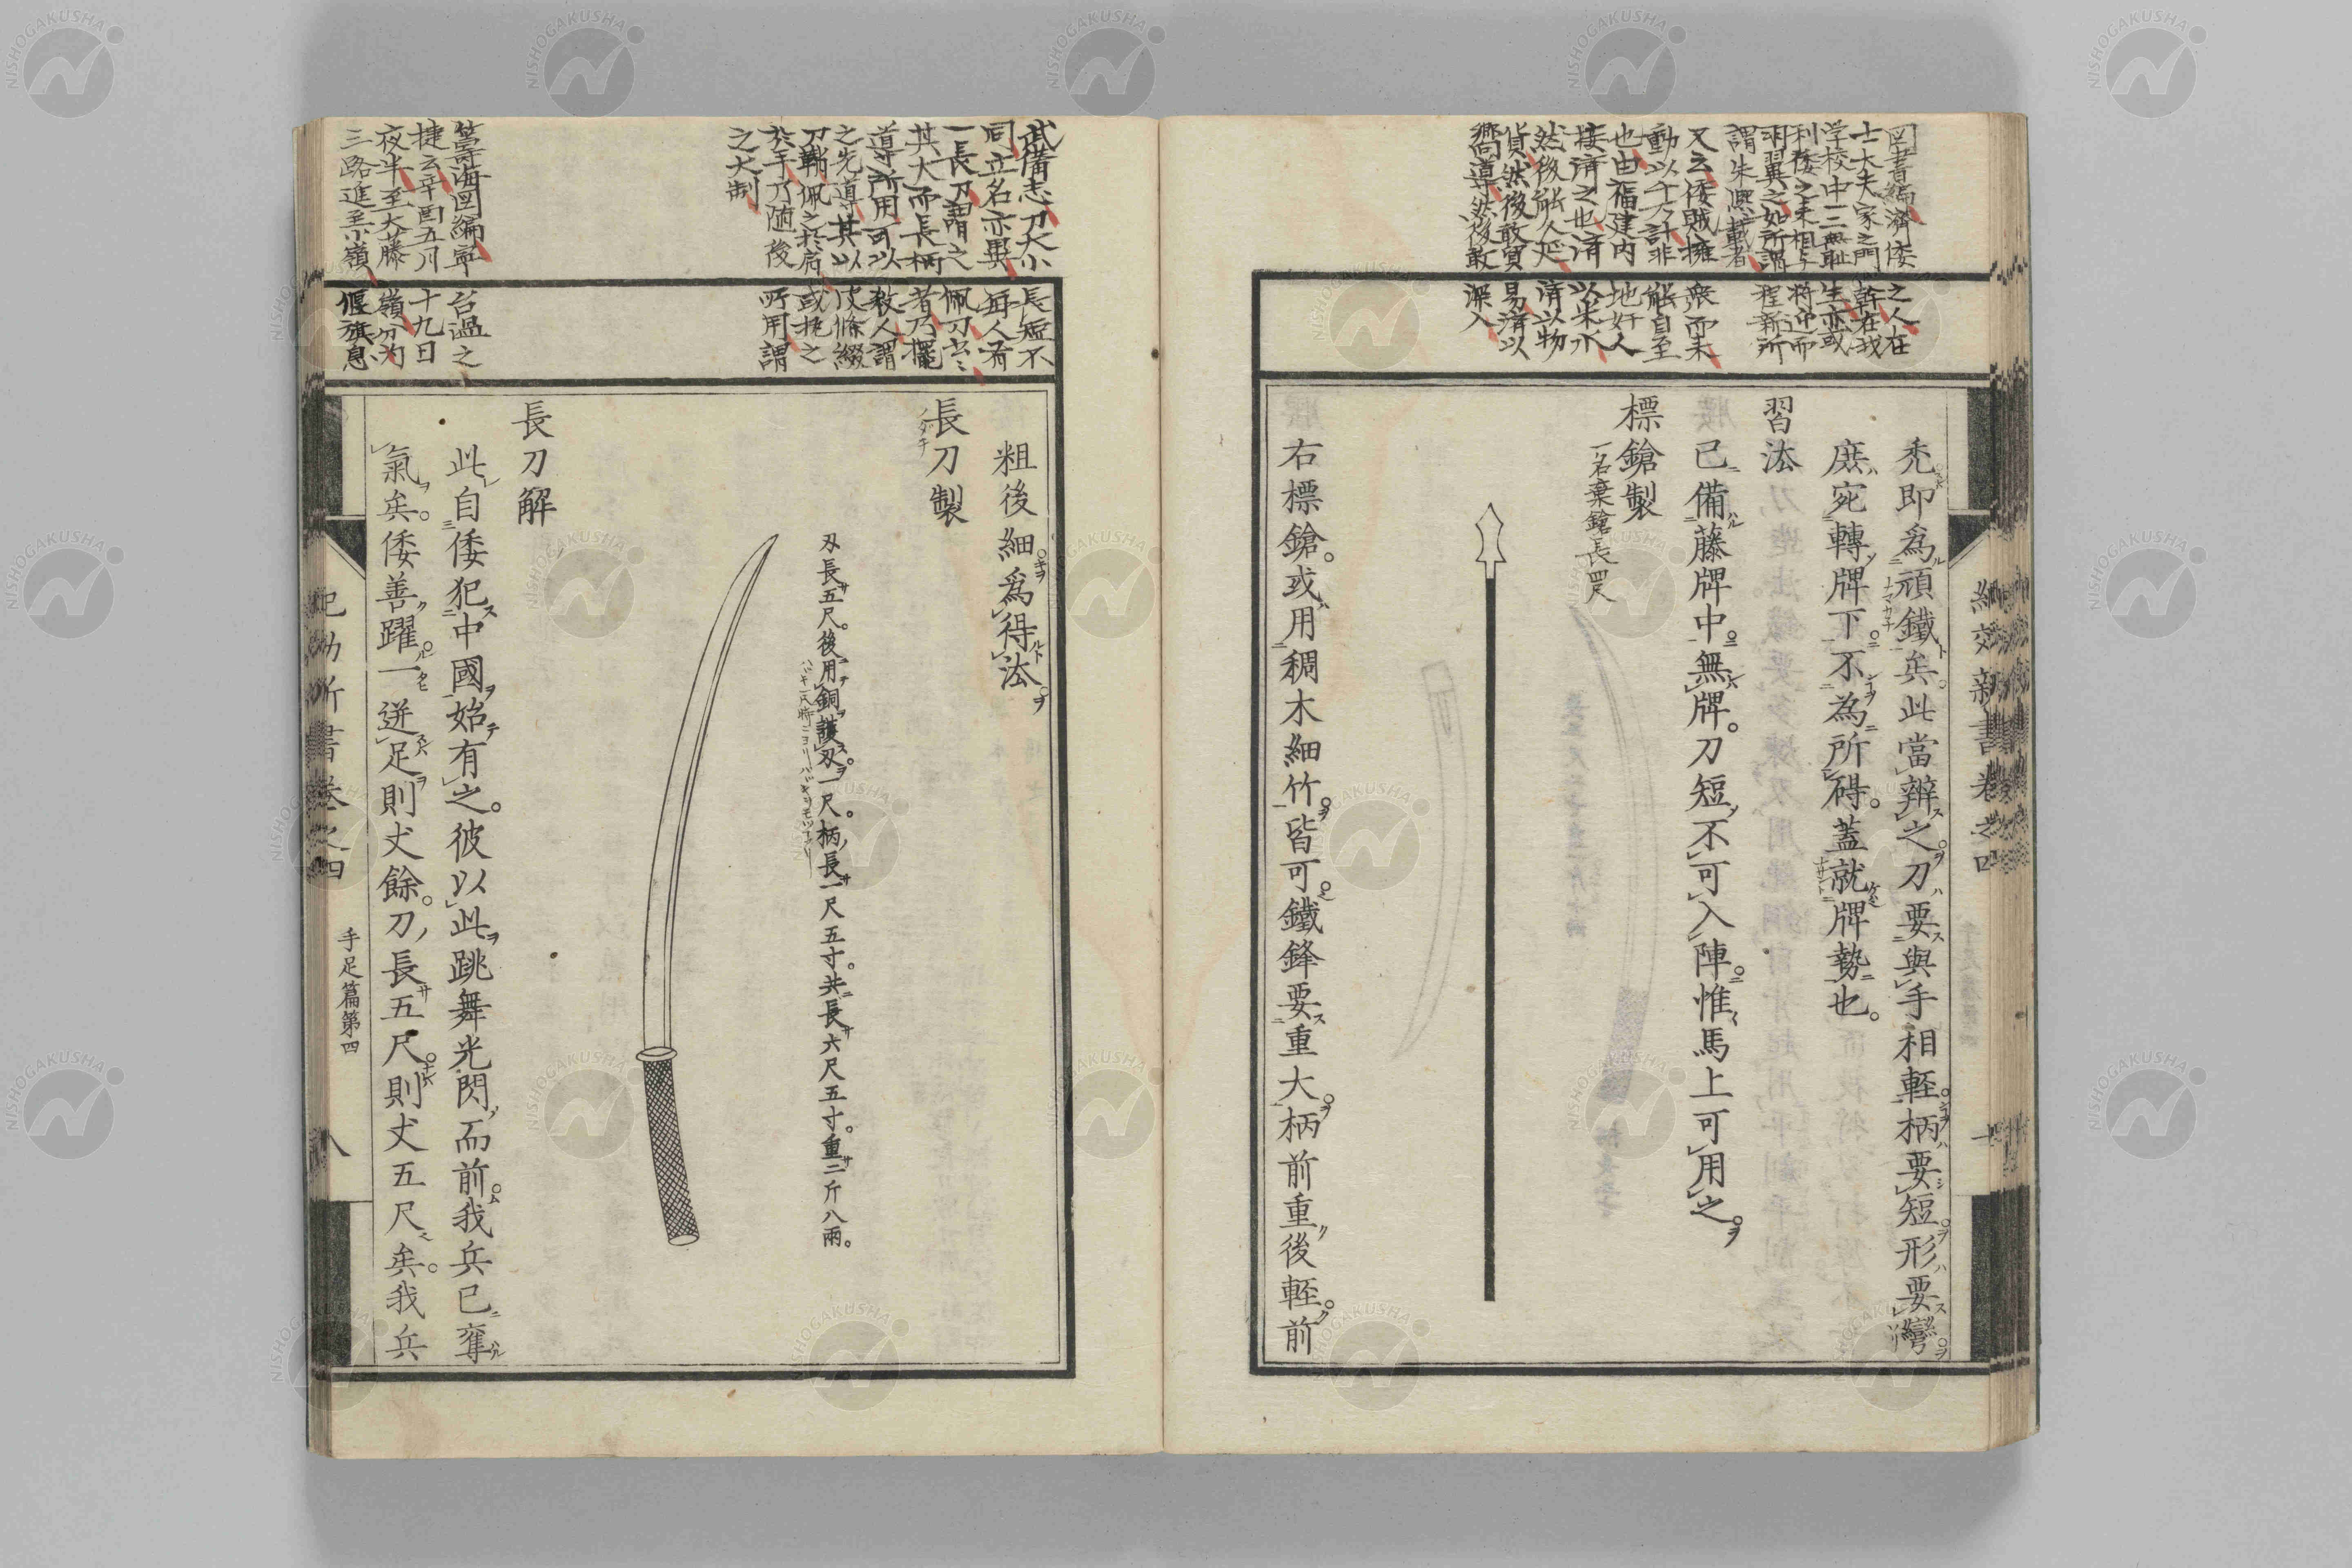 図書編濟倭之人在
士大夫家之門幹在我
学校中三無耻生亦或
利倭之来相与將迎而
羽翼之如所謂程新所
謂朱熙載者
又云倭賊擁衆而来
動以千万計非能自至
也由福建内地奸人
接済之也済以米水
然後能久延済以物
貨然後敢貿易済以
嚮導然後敢深入
紀效新書卷之四
十
禿即爲頑鐵矣此當辨之刀要與手相輕柄要短形要彎
庶宛轉牌下不為所碍蓋就牌勢也
習法
已備藤牌中無牌刀短不可入陣惟馬上可用之
標鎗製
一名棄鎗長四尺
右標鎗或用稠木細竹皆可鐵鋒要重大柄前重後輕前
武備志刀大小長短不
同立名亦異每人有
一長刀謂之佩刀
其大而長柄者乃擺
導所用可以殺人謂
之先導其以皮條綴
刀鞘佩之於肩或執之
於手乃随後所用謂
之大制
籌海図編寧台温之
捷云辛酉五川十九日
夜半至大藤嶺分为
三路進至小嶺偃旗息
粗後細爲得法
長刀製
ノダチ
刃長五尺。後用銅護刃一尺。柄長一尺五寸。共長六尺五寸。重二斤八兩。
長刀解
此自倭犯中國始有之。彼以此跳舞光閃而前我兵已奪
氣矣。倭善躍一迸足則丈餘。刀長五尺則丈五尺矣。我兵
紀効新書卷之四
手足篇第四
八
NISHOGAKUSHA